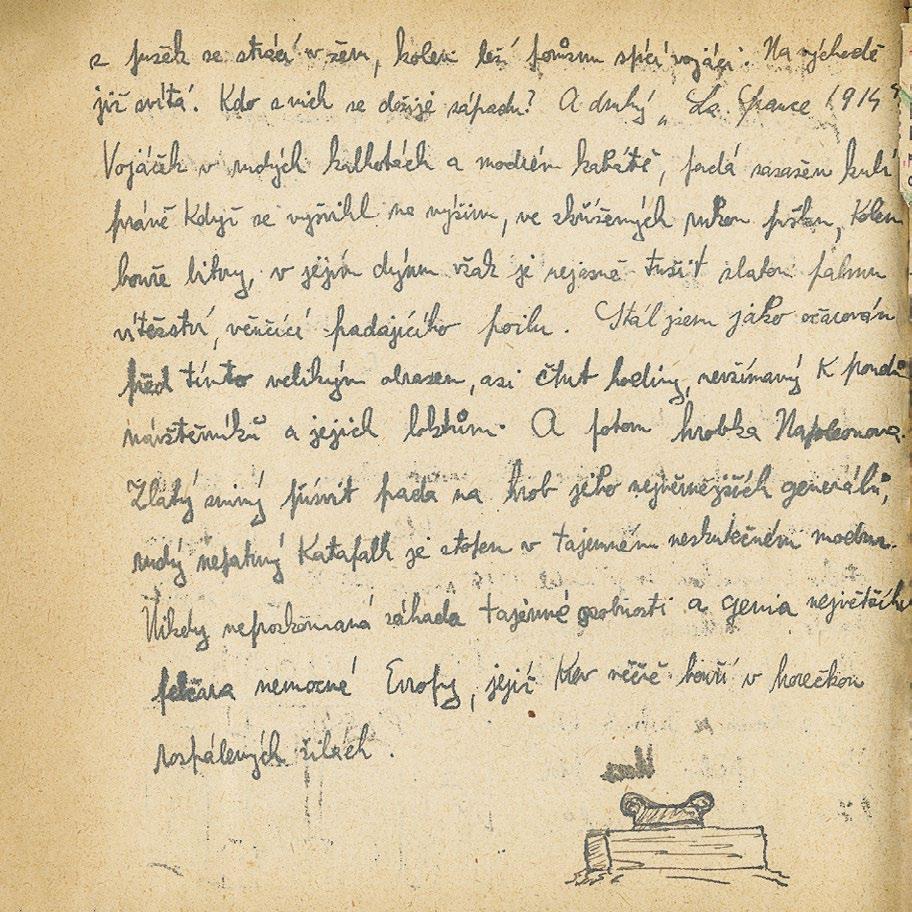 z pušek se ztrácí v šeru, kolem leží spící vojáci. Na východě
již svítá. Kdo z nich se dožije západu? A druhý „La France 1914“
Vojáček v rudých kalhotách a modrém kabátě, padá zasažen kulí
právě když se vyšvihl na výšinu, ve zkřížených rukou pušku, kolem
bouře bitvy, v jejím dýmu však je nejasně tušit zlatou palmu
vítězství, věnčící padajícího poilu. Stál jsem jako očarován
před tímto velikým obrazem, asi čtvt hodiny, nevšímavý k proudu
návštěvníků a jejich loktům. A potom hrobka Napoleonova.
Zlatý přísvit pada na hrob jeho nejvěrnějších generálů,
rudý Katafalk je stopen v tajemném neskutečném modru.
Nikdy neprozkoumaná záhada tajemné osobnosti a genia největšího
felčara nemocné Evropy, jejíž krev věčně bouří v horečkou
rozpálených žilách.